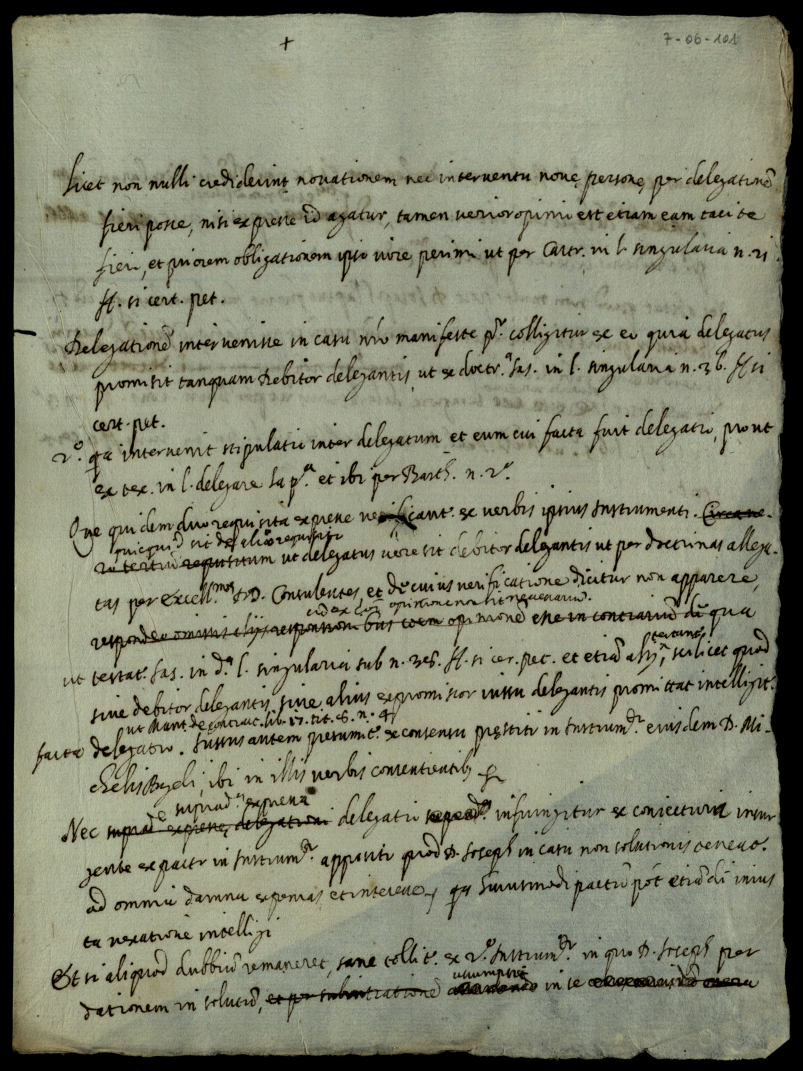 +
7-06-101
Licet non nulli crediderint novationem nec interventu novę personę per delegationē
fieri posse, nisi expresse id agatur, tamen verior opinio est etiam eam tacite
fieri, et priorem obligationem ipso iure perimi ut per Castr. in l. singularia n. 21
ff. si cert. pet.
Delegationē intervenisse in casu nr̄o manifeste p.º colligitur ex eo quia delegatus
promisit tanquam debitor delegantis, ut ex doctr.ª Jas. in l. singularia n. 36. ff si
cert. pet.
2.º qa intervenit stipulatio inter delegatum et eum cui facta fuit delegatio, prout
ex tex. in l. delegare la p.ª et ibi per Barth. n. 2.º
Que quidem duo requisita expresse verificant.r ex verbis ipsius Instrumenti.
quicquid sit de alio requisito
ut delegatus vere sit debitor delegantis ut per doctrinas allega-
tas per Excell.mos DD. Consulentes, et de cuius verificatione dicitur non apparere,
opinionē esse in contrariū de qua
ut testat.r Jas. in d.ª l. singularia sub n. 36. ff. si cer. pet. et etiā scilicet quod
sive debitor delegantis, sive alius expromissor iussu delegantis promittat intelligit.r
ut Mant. de contrac. lib. 17. tit. 6. n. 4
facta delegatio. Iussus autem presumit.r ex consensu pręstito in Instrum.to eiusdem D. Mi-
chelis ibi in illis verbis consentientibus
suprad. expressa
Nec delegatio infringitur ex coniectura insur
gente ex pacto in Instrum.to apposito quod D. Joseph in casu non solutionis teneat.r
ad omnia damna expensas et interesse, qa huiusmodi pactū pōt etiā de inius
ta vexatione intelligi
Et si aliquod dubbiū remaneret, sane tollit.r ex 2.º Instrum.to in quo D. Joseph per
dationem in solutū, in se